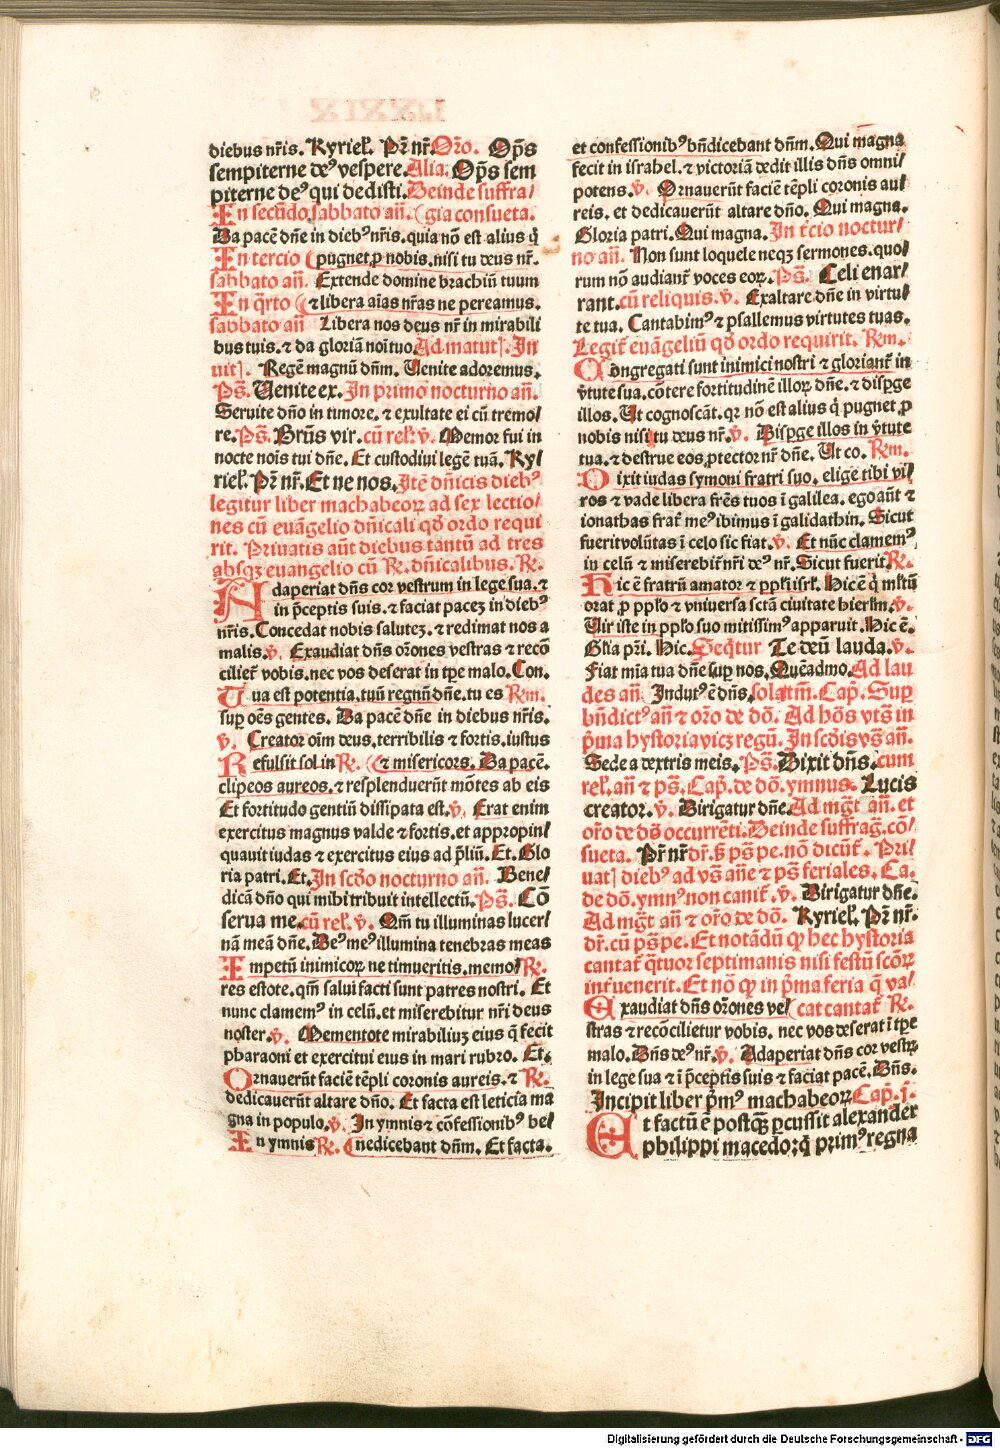 diebus nr̄is. Kyriel̄. Pr̄ nr̄. Or̄o. Op̄s
sempiterne deꝰ vespere. Alia. Op̄s sem
piterne deꝰ qui dedisti. Deinde suffra/
In secūdo sabbato añ. (gia consueta.
Da pacē dn̄e in diebꝰ nr̄is. quia nō est alius q̄
In tercio (pugnet ꝓ nobis. nisi tu deus nr̄.
sabbato añ. Extende domine brachiū tuum
In q̄rto (⁊ libera aīas nr̄as ne pereamus.
sabbato añ Libera nos deus nr̄ in mirabili
bus tuis. ⁊ da gloriā noī tuo. Ad matuť. In
uiť. Regē magnū dn̄m. Uenite adoremus.
Ps̄. Uenite ex. In primo nocturno añ.
Seruite dn̄o in timore. ⁊ exultate ei cū tremo/
re. Ps̄. Br̄us vir. cū rel̄. v̄. Memor fui in
nocte noīs tui dn̄e. Et custodiui legē tuā. Ky/
riel̄. Pr̄ nr̄. Et ne nos. Itē dn̄icis diebꝰ
legitur liber machabeoꝝ ad sex lectio/
nes cū euāgelio dn̄icali qd̄ ordo requi
rit. Priuatis aūt diebus tantū ad tres
absqꝫ euangelio cū R̄. dn̄icalibus. R̄.
Adaperiat dn̄s cor vestrum in lege sua. ⁊
in p̄ceptis suis. ⁊ faciat paceꝫ in diebꝰ
nr̄is. Concedat nobis saluteꝫ. ⁊ redimat nos a
malis. v̄. Exaudiat dn̄s or̄ones vestras ⁊ recō
cilieť vobis. nec vos deserat in tp̄e malo. Con.
Tua est potentia. tuū regnū dn̄e. tu es R̄m.
suꝑ oēs gentes. Da pacē dn̄e in diebus nr̄is.
v̄. Creator oīm deus. terribilis ⁊ fortis. iustus
Refulsit sol in R̄. (⁊ misericors. Da pacē.
clipeos aureos. ⁊ resplenduerūt mōtes ab eis
Et fortitudo gentiū dissipata est. v̄. Erat enim
exercitus magnus valde ⁊ fortis. et appropin/
quauit iudas ⁊ exercitus eius ad p̄liū. Et. Glo
ria patri. Et. In scd̄o nocturno añ. Bene/
dicā dn̄o qui mihi tribuit intellectū. Ps̄. Cō
serua me. cū rel̄. v̄. Qm̄ tu illuminas lucer/
nā meā dn̄e. Deꝰ meꝰ illumina tenebras meas
Impetū inimicoꝝ ne timueritis. memo/ R̄.
res estote. qm̄ salui facti sunt patres nostri. Et
nunc clamemꝰ in celū. et miserebitur nr̄i deus
noster. v̄. Mementote mirabiliuꝫ eius q̄ fecit
pharaoni et exercitui eius in mari rubro. Et.
Ornauerūt faciē tēpli coronis aureis. ⁊ R̄.
dedicauerūt altare dn̄o. Et facta est leticia ma
gna in populo. v̄. In ymnis ⁊ cōfessionibꝰ be/
In ymnis R̄. (nedicebant dn̄m. Et facta.
et confessionibꝰ bn̄dicebant dn̄m. Qui magna
fecit in israhel. ⁊ victoriā dedit illis dn̄s omni/
potens. v̄. Ornauerūt faciē tēpli coronis au/
reis. et dedicauerūt altare dn̄o. Qui magna.
Gloria patri. Qui magna. In t̄cio noctur/
no añ. Non sunt loquele neqꝫ sermones. quo/
rum nō audianť voces eoꝝ. Ps̄. Celi enar/
rant. cū reliquis. v̄. Exaltare dn̄e in virtu/
te tua. Cantabimꝰ ⁊ psallemus virtutes tuas.
Legiť euāgeliū qd̄ ordo requirit. R̄m.
Congregati sunt inimici nostri ⁊ glorianť in
v̄tute sua. cōtere fortitudinē illoꝝ dn̄e. ⁊ disꝑge
illos. Ut cognoscāt. qꝛ nō est alius q̄ pugnet ꝓ
nobis nisi tu deus nr̄. v̄. Disꝑge illos in v̄tute
tua. ⁊ destrue eos ꝓtector nr̄ dn̄e. Ut co. R̄m.
Dixit iudas symoni fratri suo. elige tibi vi/
ros ⁊ vade libera fr̄es tuos ī galilea. ego aūt ⁊
ionathas frať meꝰ ibimus ī galidathin. Sicut
fuerit volūtas ī celo sic fiat. v̄. Et nūc clamemꝰ
in celū ⁊ miserebiť nr̄i deꝰ nr̄. Sicut fuerit. R̄.
Hic ē fratrū amator ⁊ pp̄li isrl̄. Hic ē q̄ ml̄tū
orat ꝓ pp̄lo ⁊ vniuersa sctā ciuitate hierlm̄. v̄.
Uir iste in pp̄lo suo mitissimꝰ apparuit. Hic ē.
Gl̄ia pr̄i. Hic. Seq̄tur Te deū lauda. v̄.
Fiat mīa tua dn̄e suꝑ nos. Quēadmo. Ad lau
des añ. Indutꝰ ē dn̄s. sol̄ atm̄. Cap̄. Suꝑ
bn̄dictꝰ añ ⁊ or̄o de dō. Ad hōs vts̄ in
p̄ma hystoria vicꝫ regū. In scd̄is vs̄ añ.
Sede a dextris meis. Ps̄. Dixit dn̄s. cum
rel̄. añ ⁊ ps̄. Cap̄. de dō. ymnus. Lucis
creator. v̄. Dirigatur dn̄e. Ad mḡt añ. et
or̄o de dō occurrēti. Deinde suffrag̃. cō/
sueta. Pr̄ nr̄ dr̄. s̄ ps̄ pe. nō dicūť. Pri/
uať diebꝰ ad vs̄ añe ⁊ ps̄ feriales. Ca.
de dō. ymnꝰ non caniť. v̄. Dirigatur dn̄e.
Ad mḡt añ ⁊ or̄o de dō. Kyriel̄. Pr̄ nr̄.
dr̄. cū ps̄ pe. Et notādū qꝫ hec hystoria
cantať q̄tuor septimanis nisi festū scōꝝ
inťuenerit. Et nō qꝫ in p̄ma feria q̄ va/
Exaudiat dn̄s or̄ones ve/ (cat cantať R̄.
stras ⁊ recōcilietur vobis. nec vos deserat ī tp̄e
malo. Dn̄s deꝰ nr̄. v̄. Adaperiat dn̄s cor vestꝝ
in lege sua ⁊ ī p̄ceptis suis ⁊ faciat pacē. Dn̄s.
Incipit liber p̄mꝰ machabeoꝝ Cap̄. j.
Et factū ē postqꝫ̄ ꝑcussit alexander
philippi macedo: q̄ primꝰ regna
Digitalisierung gefördert durch die Deutsche Forschungsgemeinschaft - DFG